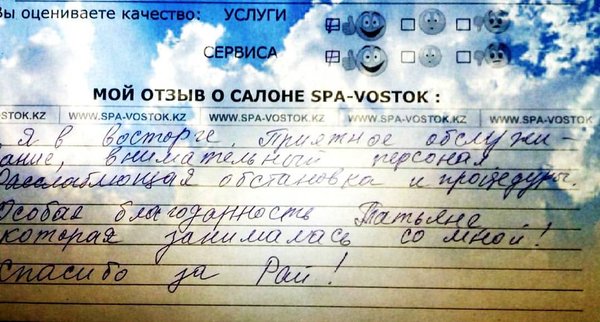 Вы оцениваете качество: УСЛУГИ
СЕРВИСА
МОЙ ОТЗЫВ О САЛОНЕ SPA-VOSTOK :
STOK.KZ WWW.SPA-VOSTOK.KZ WWW.SPA-VOSTOK.KZ WWW.SPA-VOSTOK.KZ WWW.SPA-VOS
Я в восторге. Приятное обслужи-
ание, внимательный персонал
Расслабляющая обстановка и процедуры.
Особая благодарность Татьяне
которая занималась со мной!
Спасибо за Рай!